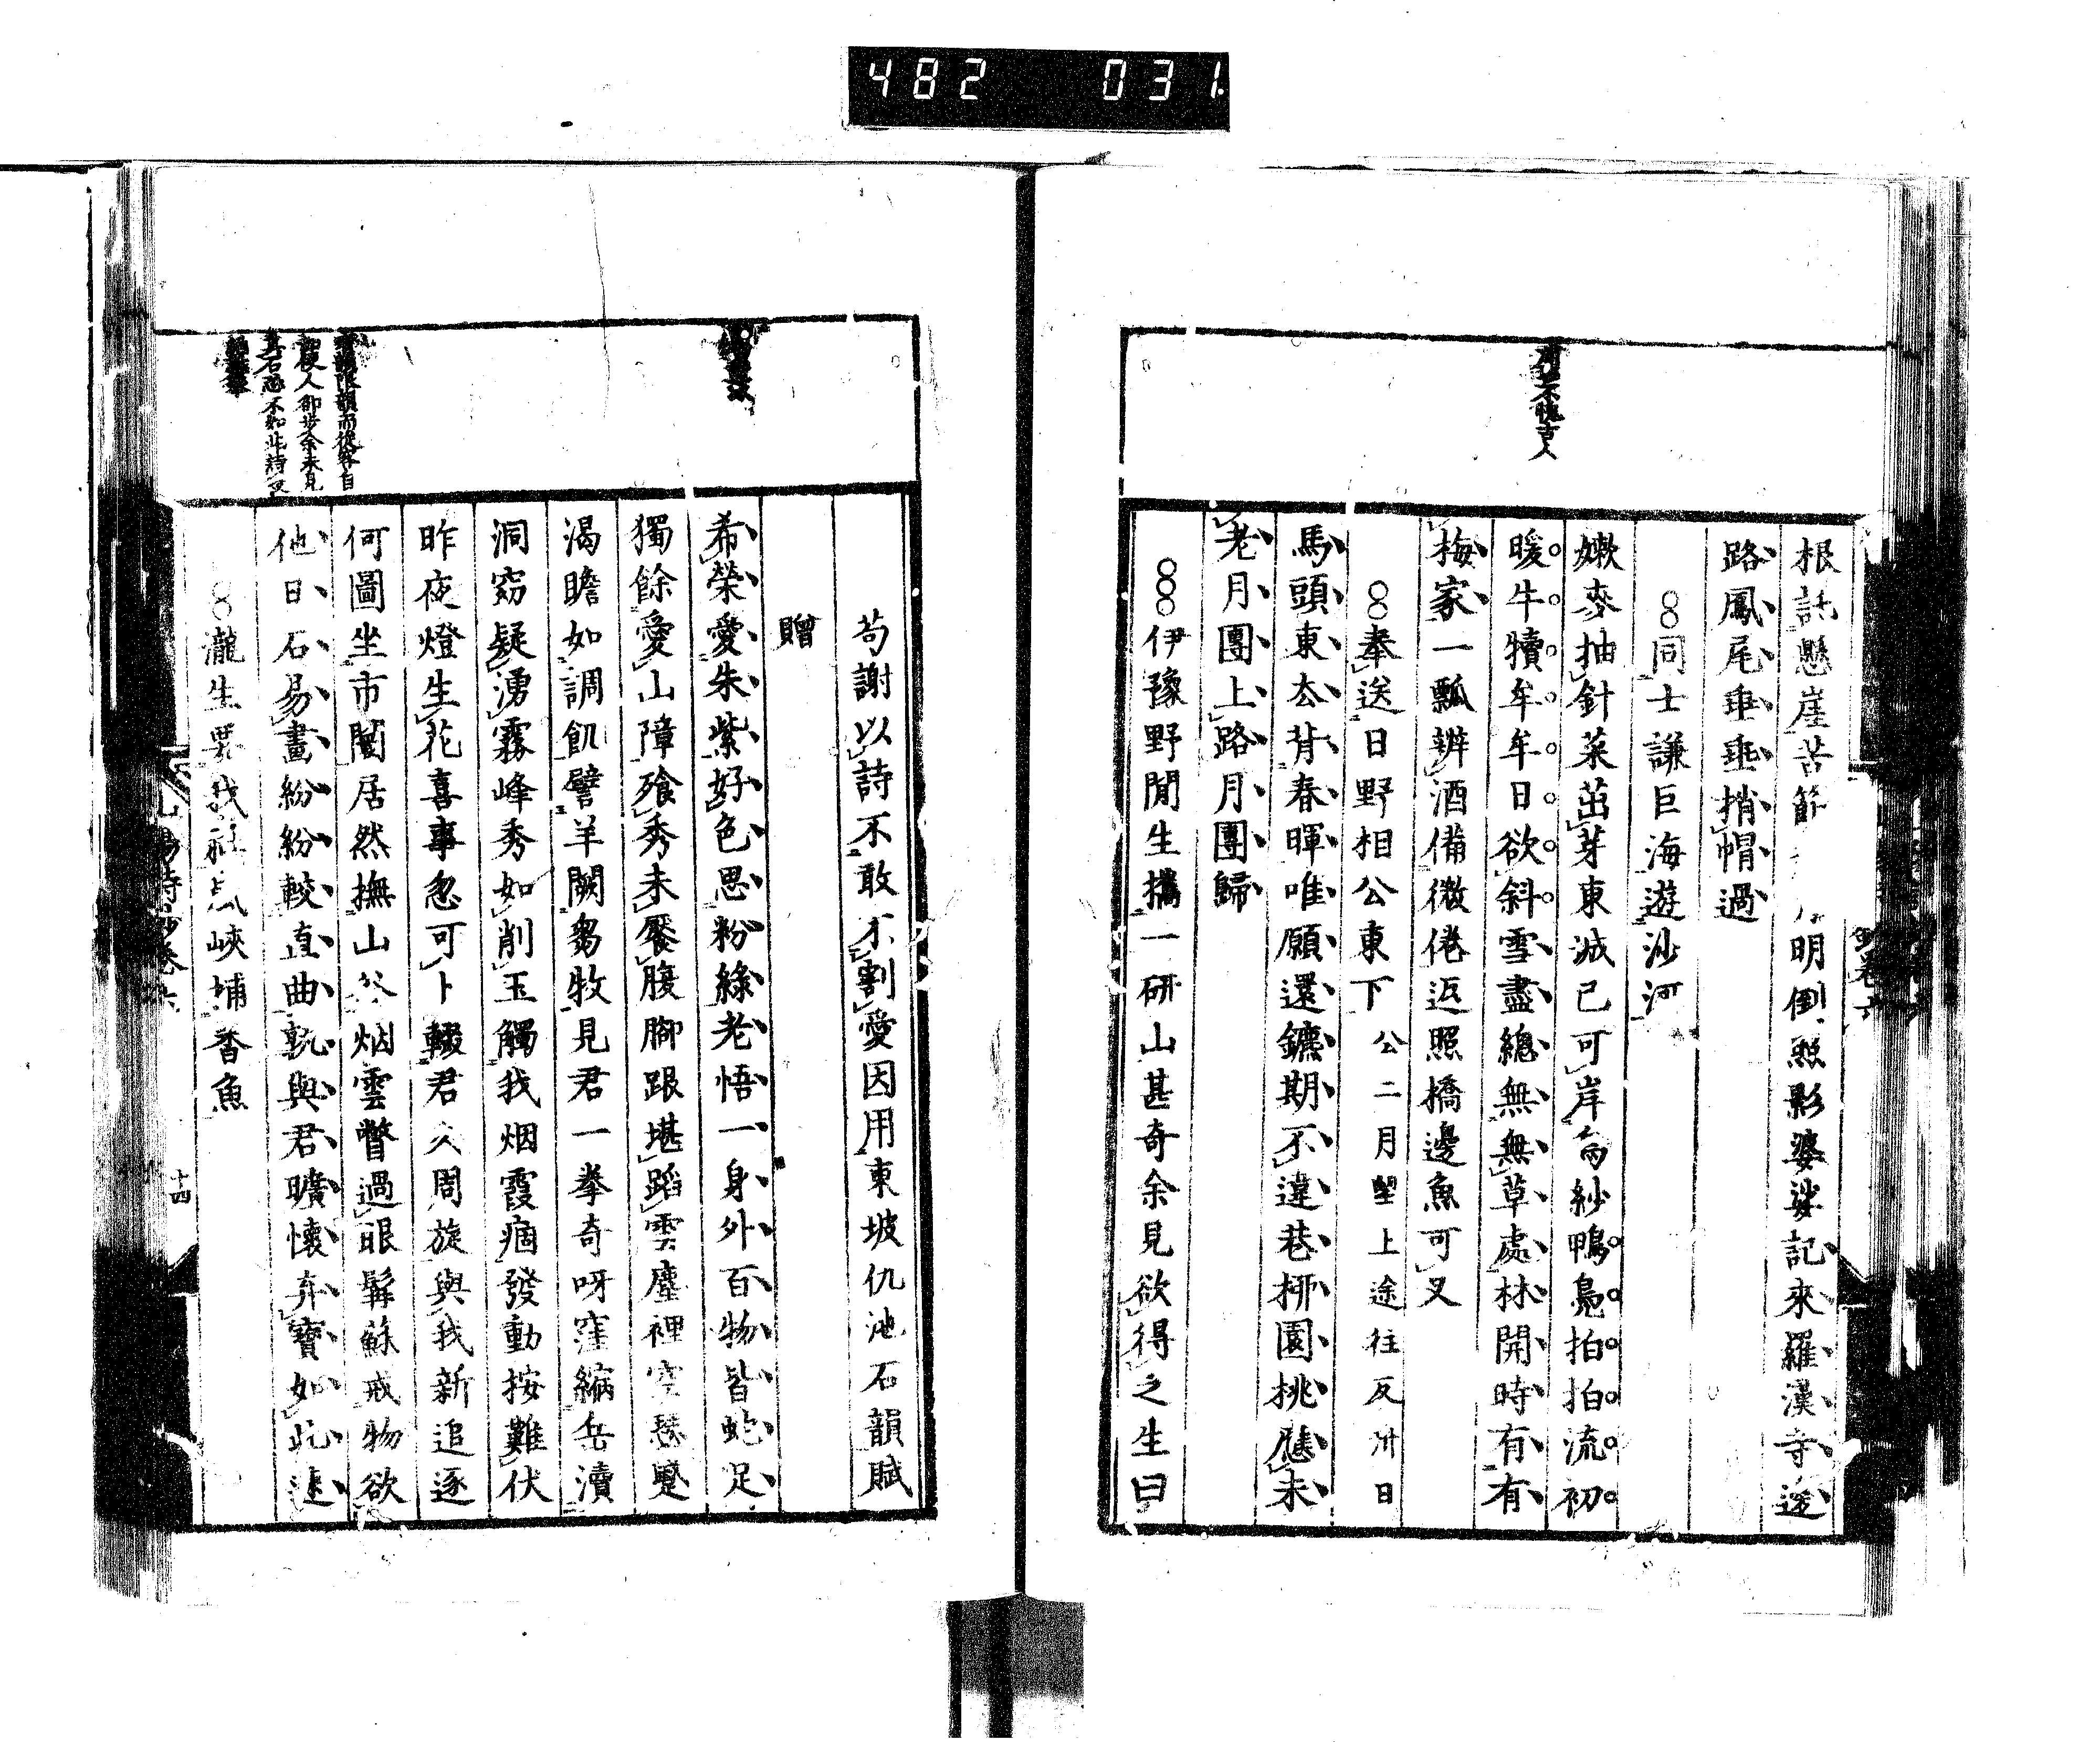 482 031.
不愧古人
根託懸崖苦節 明倒照影婆娑記來羅漢寺邊
路鳳尾垂垂捎帽過
同士謙巨海遊沙河
嫩麥抽針菜茁芽東滅已可岸烏紗鴨鳧拍拍流初
暖牛犢牟牟日欲斜雪盡總無無草處林開時有有
梅家一瓢辨酒備微倦返照橋邊魚可叉
奉送日野相公東下 公二月望上途往反卅日
馬頭東去背春暉唯願還鑣期不違巷柳園桃應未
老月團上路月團歸
伊豫野間生攜一研山甚奇余見欲得之生曰
苟謝以詩不敢不割愛因用東坡仇池石韻賦
贈
希榮愛朱紫好色思粉綠老悟一身外百物皆蛇足
獨餘愛山障飱秀未饜腹腳跟堪蹈雲塵裡空愁蹙
渴瞻如調飢譬羊闕芻牧見君一拳奇呀窪縮岳瀆
洞窈疑湧霧峰秀如削玉觸我烟霞痼發動按難伏
昨夜燈生花喜事忽可卜輟君久周旋與我新追逐
何圖坐市闤居然撫山谷烟雲瞥過眼髯蘇戒物欲
他日石易畫紛紛較直曲孰與君曠懷弃寶如此速
瀧生要我 峽埔香魚
使人卻步余未見
其石恐不如此詩
十四